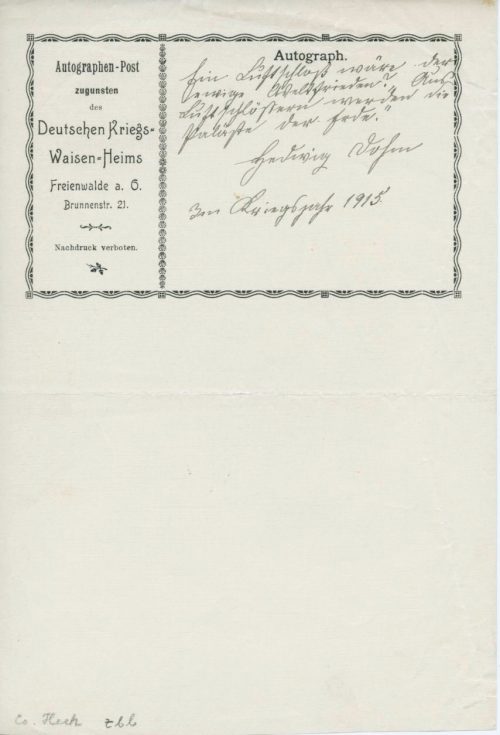 Autographen-Post
zugunsten
des
Deutschen Kriegs-
Waisen-Heims
Freienwalde a. O.
Brunnenstr. 21.
Nachdruck verboten.
Autograph.
Ein Luftschloß wäre der
ewige Weltfrieden? Aus
Luftschlössern werden die
Paläste der Erde."
Hedwig Dohm
Im Kriegsjahr 1915.
Co. Heck